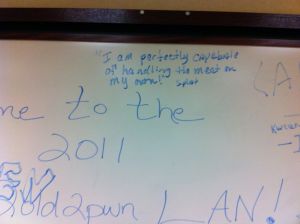 "I am perfectly capable
of handling the meat on
my own!" Spot
me to the
2011
old2pwn LAN!